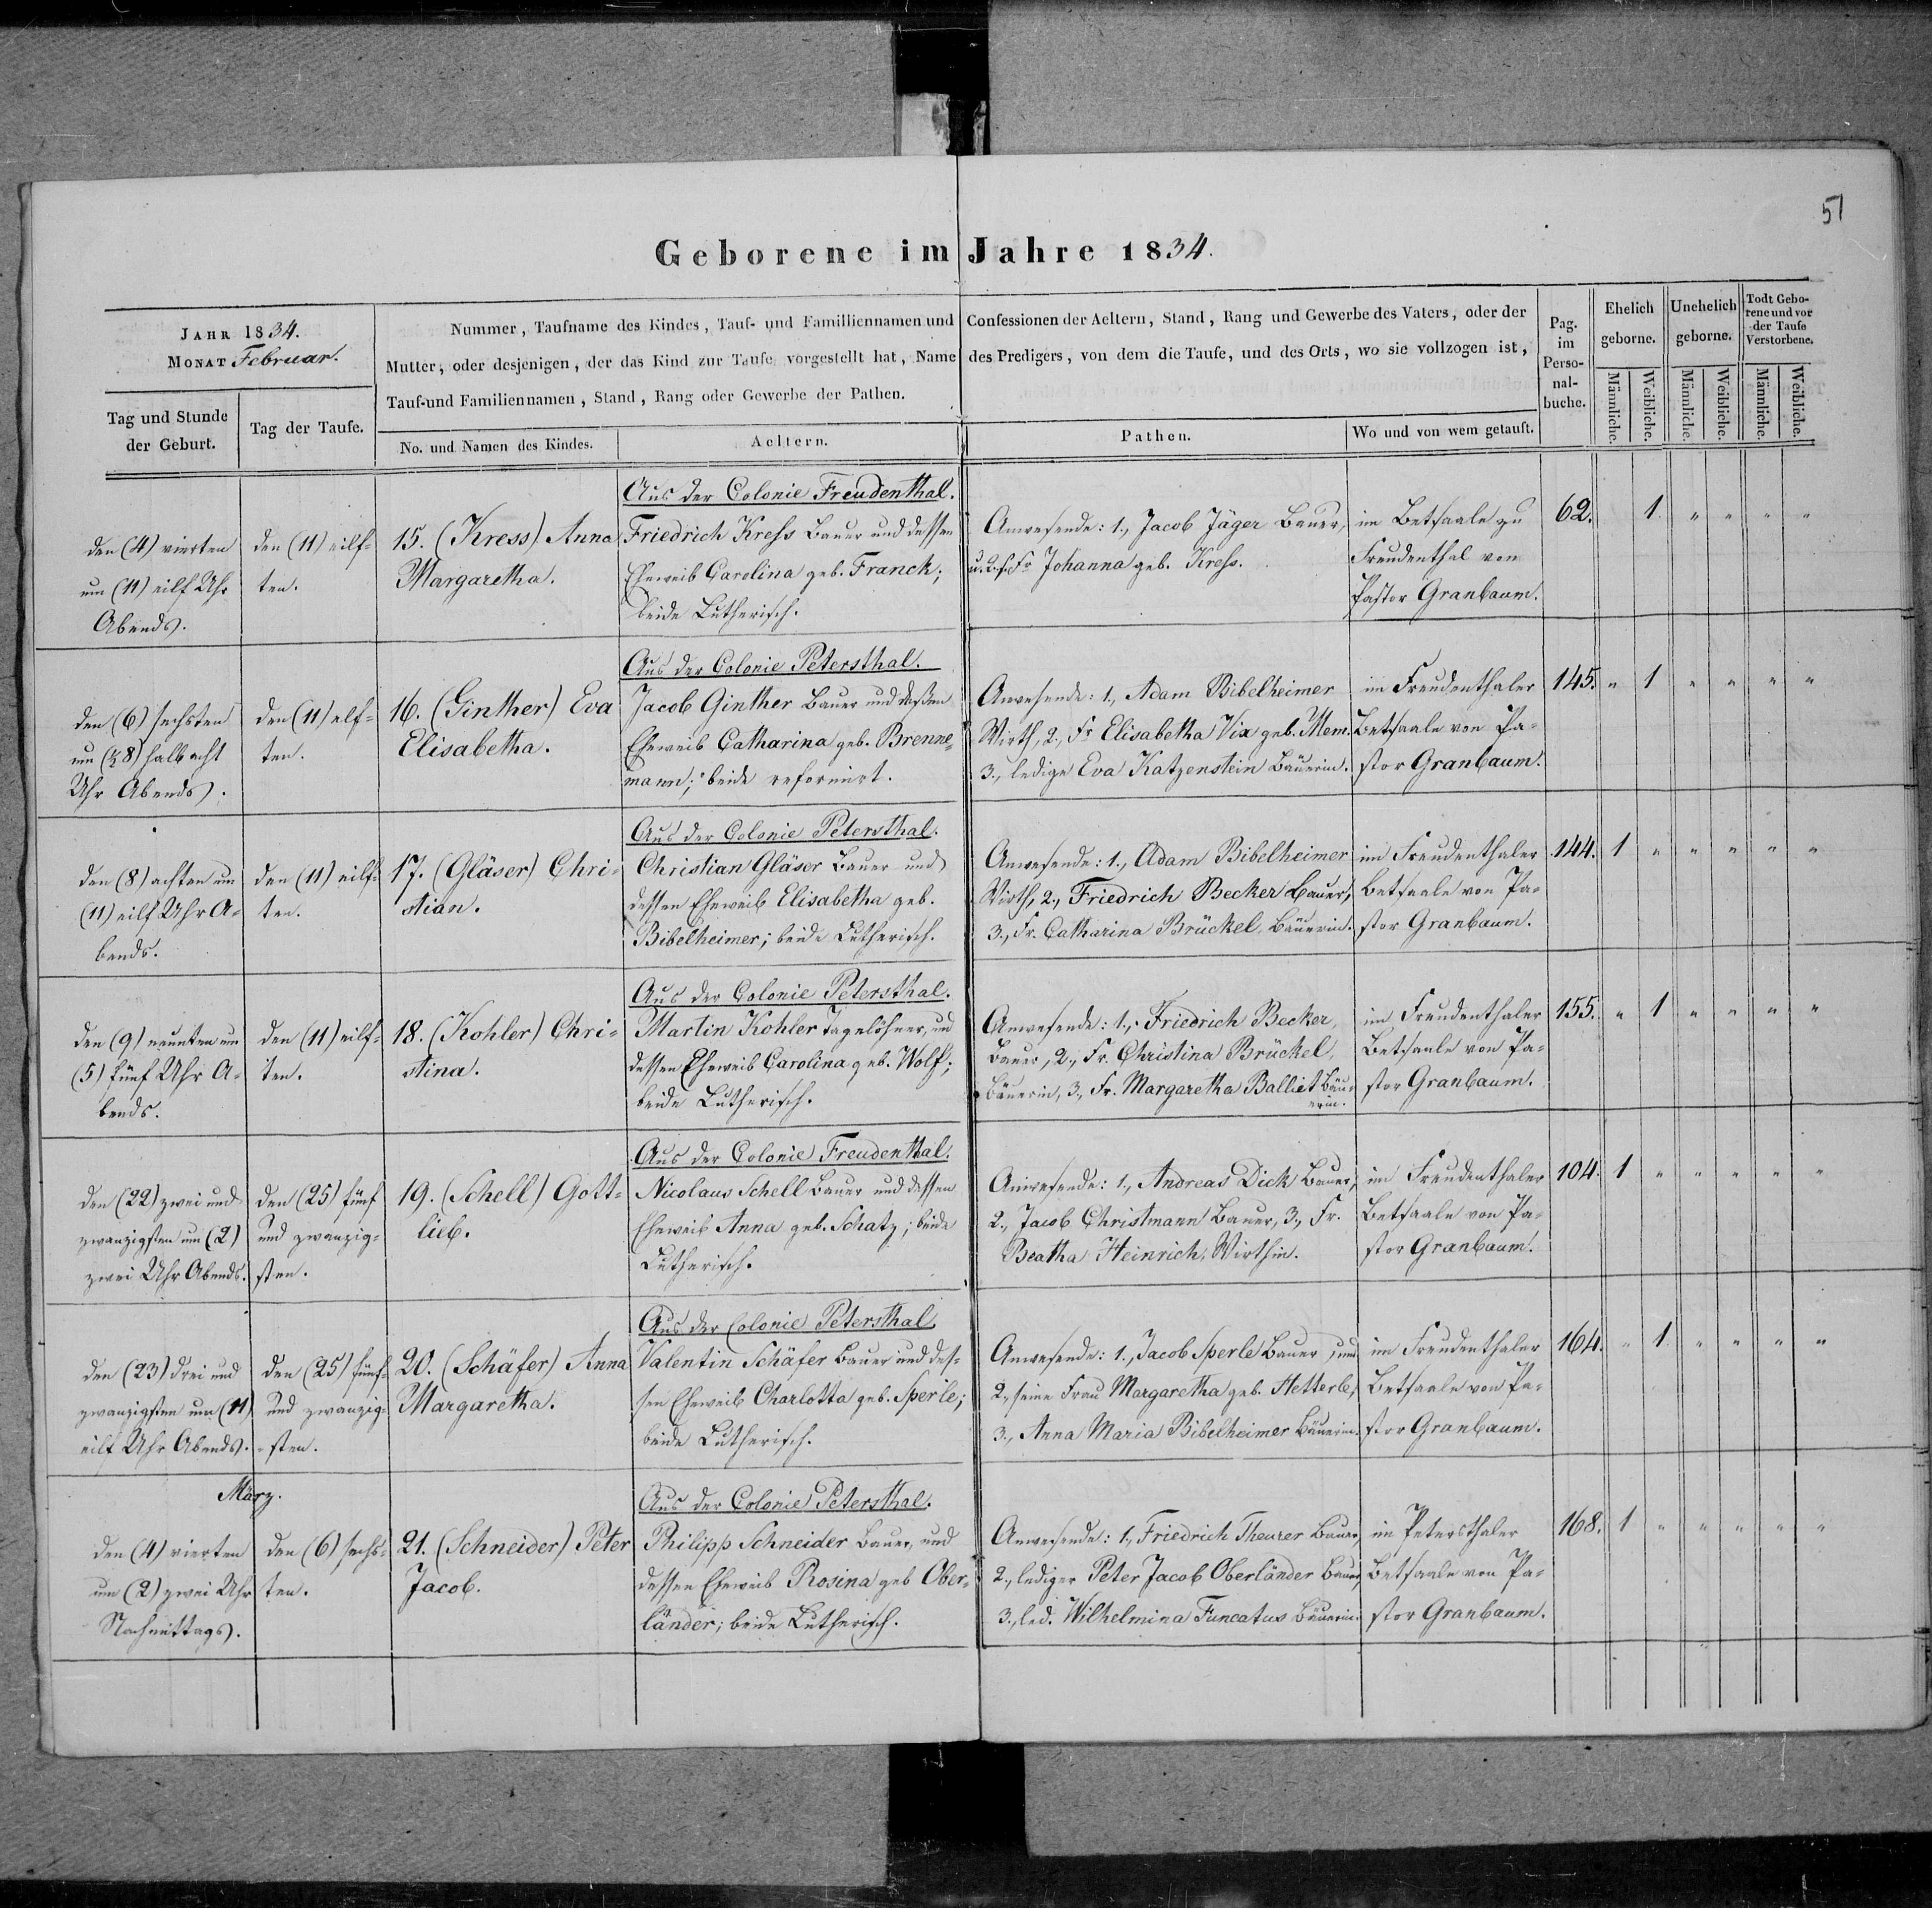 51
Geborene im Jahre 1834.
JAHR 1834.
MONAT Februar.
Tag und Stunde
der Geburt.
Tag der Taufe.
Nummer, Taufname des Kindes, Tauf- und Familliennamen und Confessionen der Aeltern, Stand, Rang und Gewerbe des Vaters, oder der
Mutter, oder desjenigen, der das Kind zur Taufe vorgestellt hat, Name des Predigers, von dem die Taufe, und des Orts, wo sie vollzogen ist,
Tauf-und Familiennamen, Stand, Rang oder Gewerbe der Pathen.
No. und Namen des Kindes.
Aeltern.
Pathen.
Wo und von wem getauft.
Pag.
im
Perso-
nal-
buche.
Ehelich
geborne.
Unehelich
geborne.
Todt Gebo-
rene und vor
der Taufe
Verstorbene.
Männliche.
Weibliche.
Männliche.
Weibliche.
Männliche.
Weibliche.
den (4) vierten
um (11) eilf Uhr
Abends.
den (11) eilf-
ten.
15. (Kress) Anna
Margaretha.
Aus der Colonie Freudenthal.
Friedrich Kress Bauer und dessen
Eheweib Carolina geb. Franck;
beide Lutherisch.
Anwesende: 1., Jacob Jäger Bauer,
u. 2. s. Fr Johanna geb. Kress.
im Betsaale zu
Freudenthal von
Pastor Granbaum.
62. 1. " " " "
den (6) sechsten
um (½8) halb acht
Uhr Abends.
den (11) elf-
ten.
16. (Ginther) Eva
Elisabetha.
Aus der Colonie Petersthal.
Jacob Ginther Bauer und deßen
Eheweib Catharina geb. Brenne-
mann; beide reformirt.
Anwesende: 1., Adam Bibelheimer
Wirth, 2., Fr Elisabetha Vix geb. Mem.
3., ledige Eva Katzenstein Bäuerin.
im Freudenthaler
Betsaale von Pa-
stor Granbaum.
145. " 1 " " " "
den (8) achten um
(11) eilf Uhr A-
bends.
den (11) eilf-
ten.
17. (Gläser) Chri-
stian.
Aus der Colonie Petersthal.
Christian Gläser Bauer und
dessen Eheweib Elisabetha geb.
Bibelheimer; beide Lutherisch.
Anwesende: 1., Adam Bibelheimer
Wirth, 2., Friedrich Becker Bauer,
3., Fr. Catharina Brückel, Bäuerin.
im Freudenthaler
Betsaale von Pa-
stor Granbaum.
144. 1 " " " " "
den (9) neunten um
(5) fünf Uhr A-
bends.
den (11) eilf-
ten.
18. (Kohler) Chri-
stina.
Aus der Colonie Petersthal.
Martin Kohler Tagelöhner, und
dessen Eheweib Carolina geb. Wolf;
beide Lutherisch.
Anwesende: 1., Friedrich Becker,
Bauer, 2., Fr. Christina Brückel,
Bäuerin, 3., Fr. Margaretha Balliet Bäu-
erin.
im Freudenthaler
Betsaale von Pa-
stor Granbaum.
155. " 1 " " " "
den (22) zwei und
zwanzigsten um (2)
zwei Uhr Abends.
den (25) fünf
und zwanzig-
sten.
19. (Schell) Gott-
lieb.
Aus der Colonie Freudenthal.
Nicolaus Schell Bauer und dessen
Eheweib Anna geb. Schatz; beide
Lutherisch.
Anwesende: 1., Andreas Dick Bauer,
2., Jacob Christmann Bauer, 3., Fr.
Beatha Heinrich, Wirthin.
im Freudenthaler
Betsaale von Pa-
stor Granbaum.
104. 1 " " " " "
den (23) drei und
zwanzigsten um (11)
eilf Uhr Abends.
den (25) fünf-
und zwanzig-
sten.
20. (Schäfer) Anna
Margaretha.
Aus der Colonie Petersthal
Valentin Schäfer Bauer und des-
sen Eheweib Charlotta geb. Sperle;
beide Lutherisch.
Anwesende: 1., Jacob Sperle Bauer, und
2., seine Frau Margaretha geb. Hetterle,
3., Anna Maria Bibelheimer Bäuerin.
im Freudenthaler
Betsaale von Pa-
stor Granbaum.
164. " 1. " " " "
März.
den (4) vierten
um (2) zwei Uhr
Nachmittags.
den (6) sechs-
ten.
21. (Schneider) Peter
Jacob.
Aus der Colonie Petersthal.
Philipp Schneider Bauer, und
dessen Eheweib Rosina geb Ober-
länder; beide Lutherisch.
Anwesende: 1., Friedrich Theurer Bauer,
2., lediger Peter Jacob Oberländer Bauer,
3., led. Wilhelmina Funcatus Bäuerin.
im Petersthaler
Betsaale von Pa-
stor Granbaum.
168. 1 " " " " "